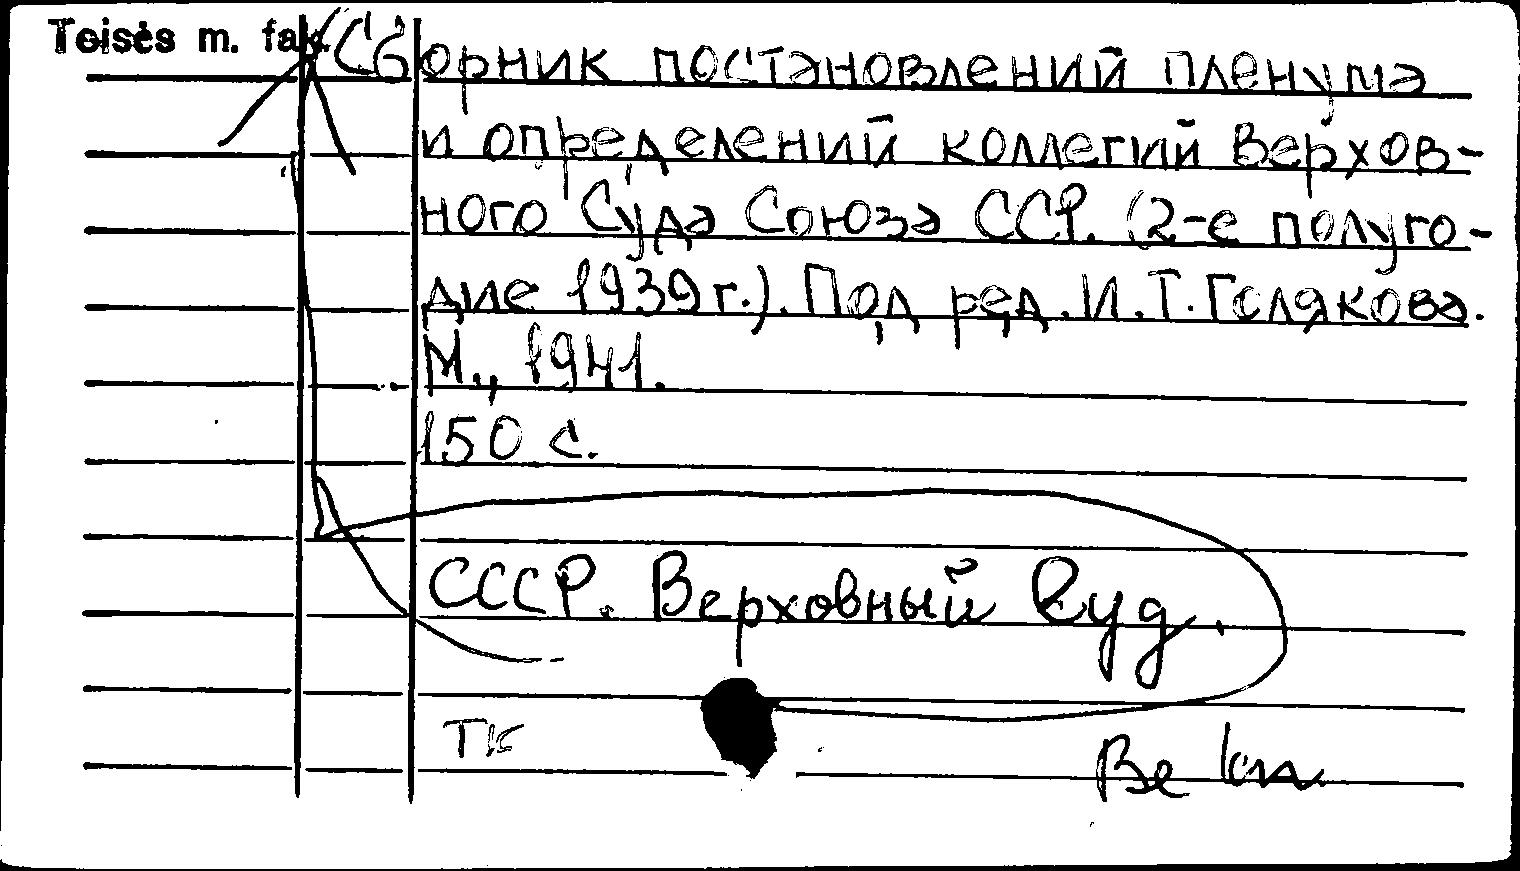 Teisės m. fak.
Сборник постановлений пленума
и определений коллегий Верхов-
ного Суда Союза ССР. (2-е полуго-
дие 1939 г.). Под ред. И.Т.Голякова.
М., 1941.
150 с.
СССР. Верховный Суд.
Be